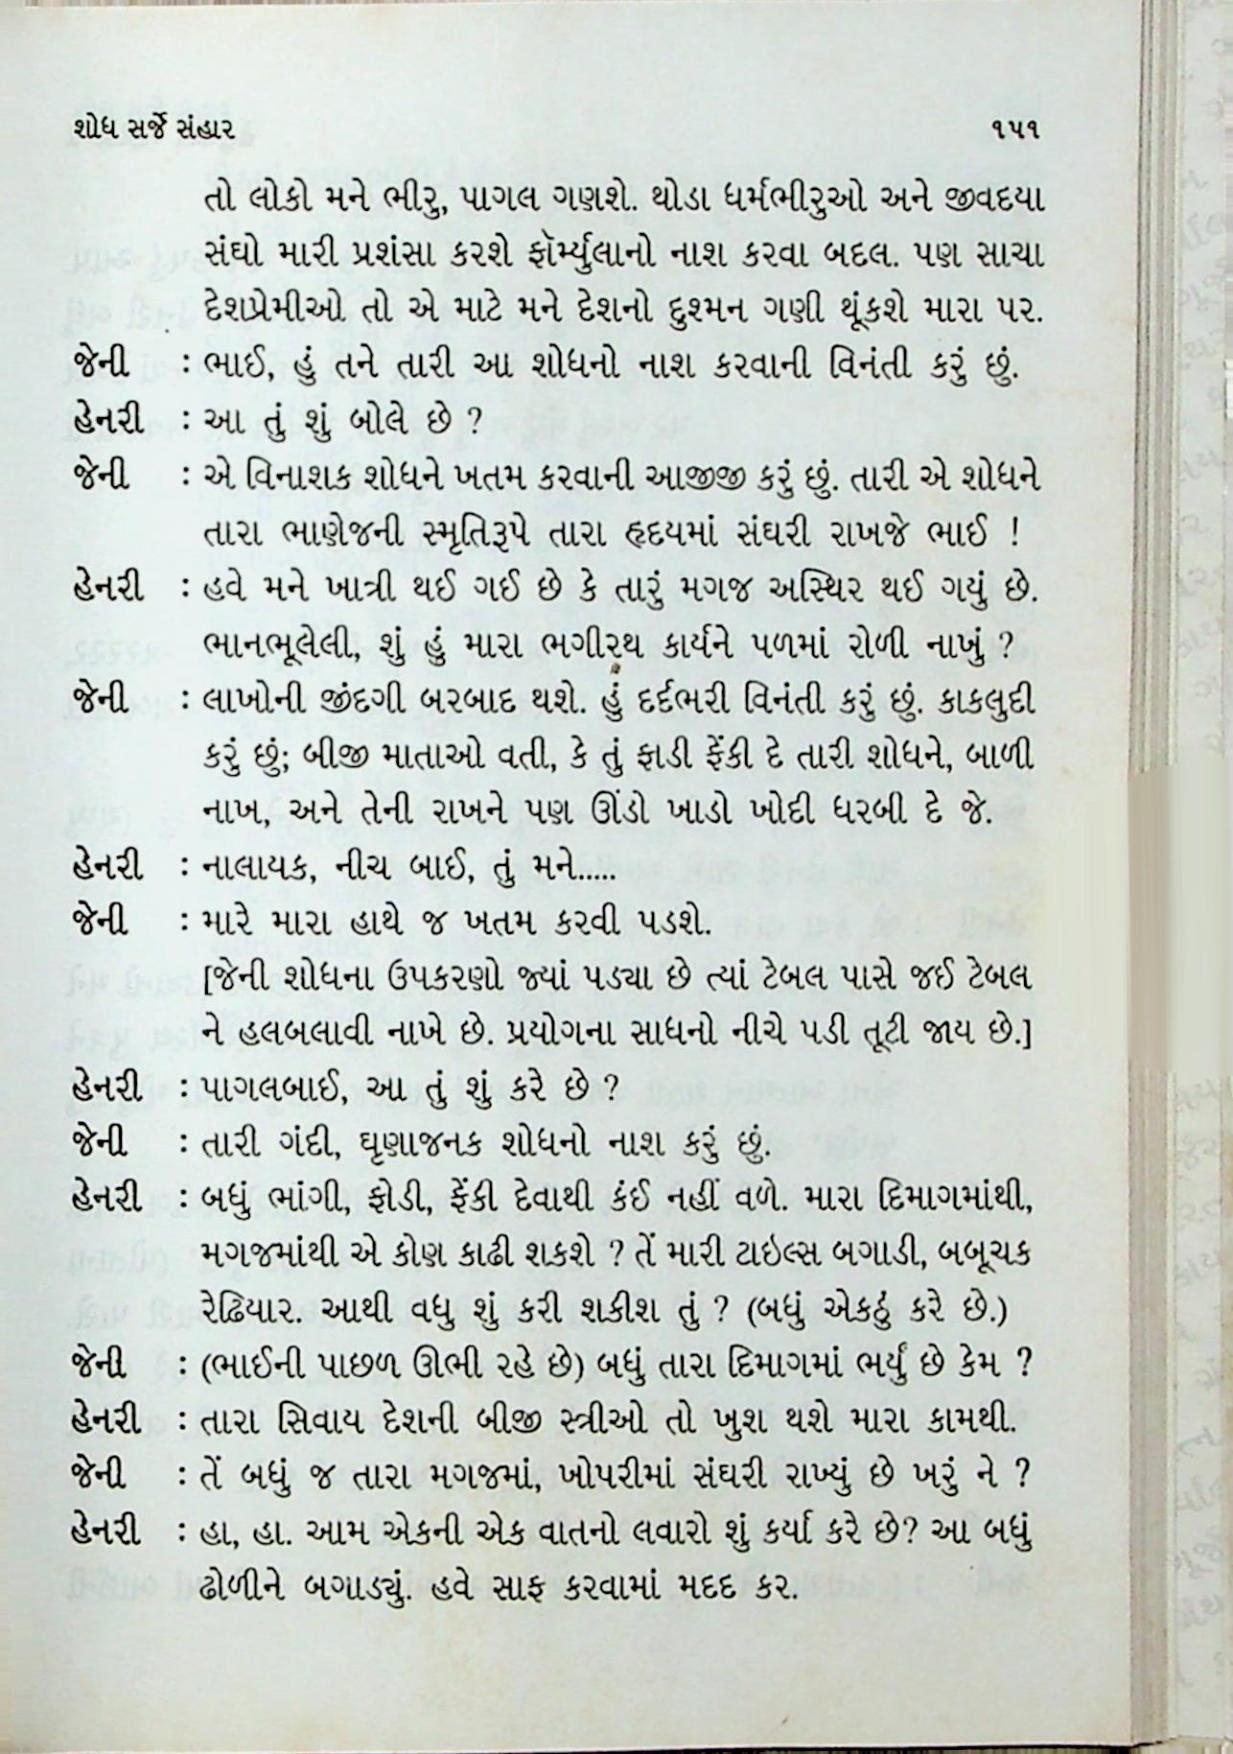 શોધ સર્જે સંહાર ૧૫૧
તો લોકો મને ભીરુ, પાગલ ગણશે. થોડા ધર્મભીરુઓ અને જીવદયા
સંઘો મારી પ્રશંસા કરશે ફૉર્મ્યુલાનો નાશ કરવા બદલ. પણ સાચા
દેશપ્રેમીઓ તો એ માટે મને દેશનો દુશ્મન ગણી થૂંકશે મારા પર.
જેની : ભાઈ, હું તને તારી આ શોધનો નાશ કરવાની વિનંતી કરું છું.
હેનરી : આ તું શું બોલે છે ?
જેની : એ વિનાશક શોધને ખતમ કરવાની આજીજી કરું છું. તારી એ શોધને
તારા ભાણેજની સ્મૃતિરૂપે તારા હૃદયમાં સંઘરી રાખજે ભાઈ !
હેનરી : હવે મને ખાત્રી થઈ ગઈ છે કે તારું મગજ અસ્થિર થઈ ગયું છે.
ભાનભૂલેલી, શું હું મારા ભગીરથ કાર્યને પળમાં રોળી નાખું ?
જેની : લાખોની જીંદગી બરબાદ થશે. હું દર્દભરી વિનંતી કરું છું. કાકલુદી
કરું છું; બીજી માતાઓ વતી, કે તું ફાડી ફેંકી દે તારી શોધને, બાળી
નાખ, અને તેની રાખને પણ ઊંડો ખાડો ખોદી ધરબી દે જે.
હેનરી : નાલાયક, નીચ બાઈ, તું મને.....
જેની : મારે મારા હાથે જ ખતમ કરવી પડશે.
[જેની શોધના ઉપકરણો જ્યાં પડ્યા છે ત્યાં ટેબલ પાસે જઈ ટેબલ
ને હલબલાવી નાખે છે. પ્રયોગના સાધનો નીચે પડી તૂટી જાય છે.]
હેનરી : પાગલબાઈ, આ તું શું કરે છે ?
જેની : તારી ગંદી, ઘૃણાજનક શોધનો નાશ કરું છું.
હેનરી : બધું ભાંગી, ફોડી, ફેંકી દેવાથી કંઈ નહીં વળે. મારા દિમાગમાંથી,
મગજમાંથી એ કોણ કાઢી શકશે ? તેં મારી ટાઇલ્સ બગાડી, બબૂચક
રેઢિયાર. આથી વધુ શું કરી શકીશ તું ? (બધું એકઠું કરે છે.)
જેની : (ભાઈની પાછળ ઊભી રહે છે) બધું તારા દિમાગમાં ભર્યું છે કેમ ?
હેનરી : તારા સિવાય દેશની બીજી સ્ત્રીઓ તો ખુશ થશે મારા કામથી.
જેની : તેં બધું જ તારા મગજમાં, ખોપરીમાં સંઘરી રાખ્યું છે ખરું ને ?
હેનરી : હા, હા. આમ એકની એક વાતનો લવારો શું કર્યા કરે છે? આ બધું
ઢોળીને બગાડ્યું. હવે સાફ કરવામાં મદદ કર.